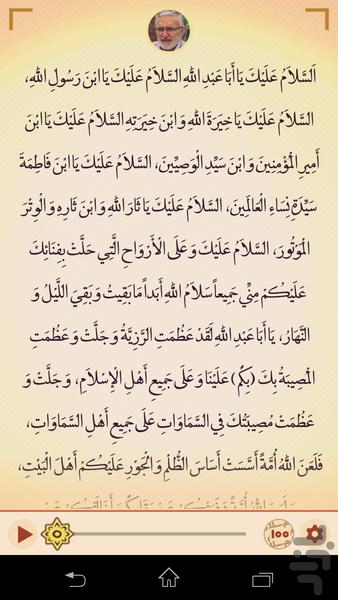 اَلسَّلاَمُ عَلَيْكَ يَا أَبَا عَبْدِ اللهِ السَّلاَمُ عَلَيْكَ يَا ابْنَ رَسُولِ اللهِ،
السَّلاَمُ عَلَيْكَ يَا خِيَرَةَ اللهِ وَ ابْنَ خِيَرَتِهِ السَّلاَمُ عَلَيْكَ يَا ابْنَ
أَمِيرِ الْمُؤْمِنِينَ وَ ابْنَ سَيِّدِ الْوَصِيِّينَ، السَّلاَمُ عَلَيْكَ يَا ابْنَ فَاطِمَةَ
سَيِّدَةِ نِسَاءِ الْعَالَمِينَ، السَّلاَمُ عَلَيْكَ يَا ثَارَ اللهِ وَ ابْنَ ثَارِهِ وَ الْوِتْرَ
الْمَوْتُورَ، السَّلاَمُ عَلَيْكَ وَ عَلَى الْأَرْوَاحِ الَّتِي حَلَّتْ بِفِنَائِكَ
عَلَيْكُمْ مِنِّي جَمِيعاً سَلاَمُ اللهِ أَبَداً مَا بَقِيتُ وَ بَقِيَ اللَّيْلُ وَ
النَّهَارُ، يَا أَبَا عَبْدِ اللهِ لَقَدْ عَظُمَتِ الرَّزِيَّةُ وَ جَلَّتْ وَ عَظُمَتِ
الْمُصِيبَةُ بِكَ (بِكُمْ) عَلَيْنَا وَ عَلَى جَمِيعِ أَهْلِ الْإِسْلاَمِ، وَ جَلَّتْ وَ
عَظُمَتْ مُصِيبَتُكَ فِي السَّمَاوَاتِ عَلَى جَمِيعِ أَهْلِ السَّمَاوَاتِ،
فَلَعَنَ اللهُ أُمَّةً أَسَّسَتْ أَسَاسَ الظُّلْمِ وَ الْجَوْرِ عَلَيْكُمْ أَهْلَ الْبَيْتِ،
١٠٠